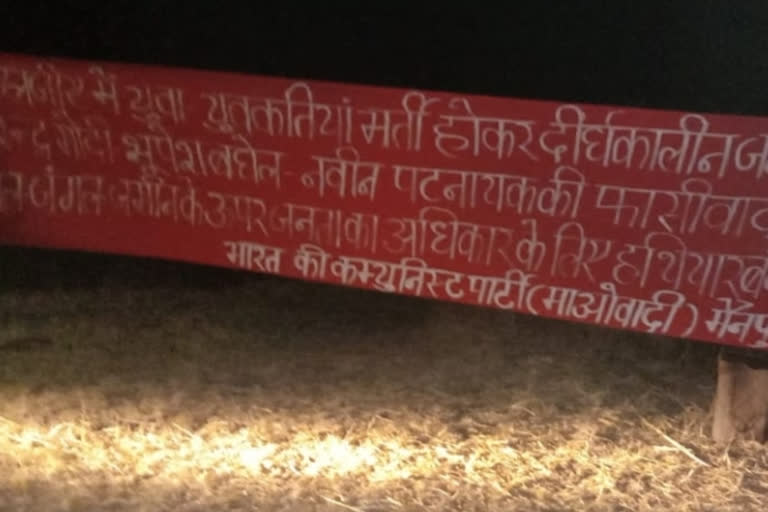 में युवा युवकतियां भर्ती होकर दीर्घकालीन
मोदी भूपेश बघेल - नवीन पटनायक की फासीवाद
जंगल जमीन के ऊपर जनता का अधिकार के लिए हथियार
भारत की कम्युनिस्ट पार्टी (माओवादी) मैनपु